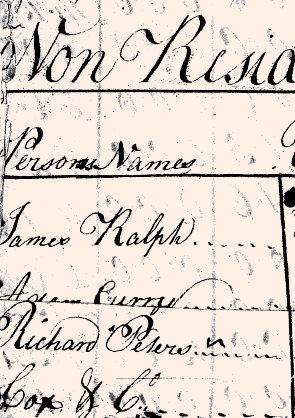 Non Resid
Persons Names
James Ralph
Adam Curry
Richard Peters
Cox & Co